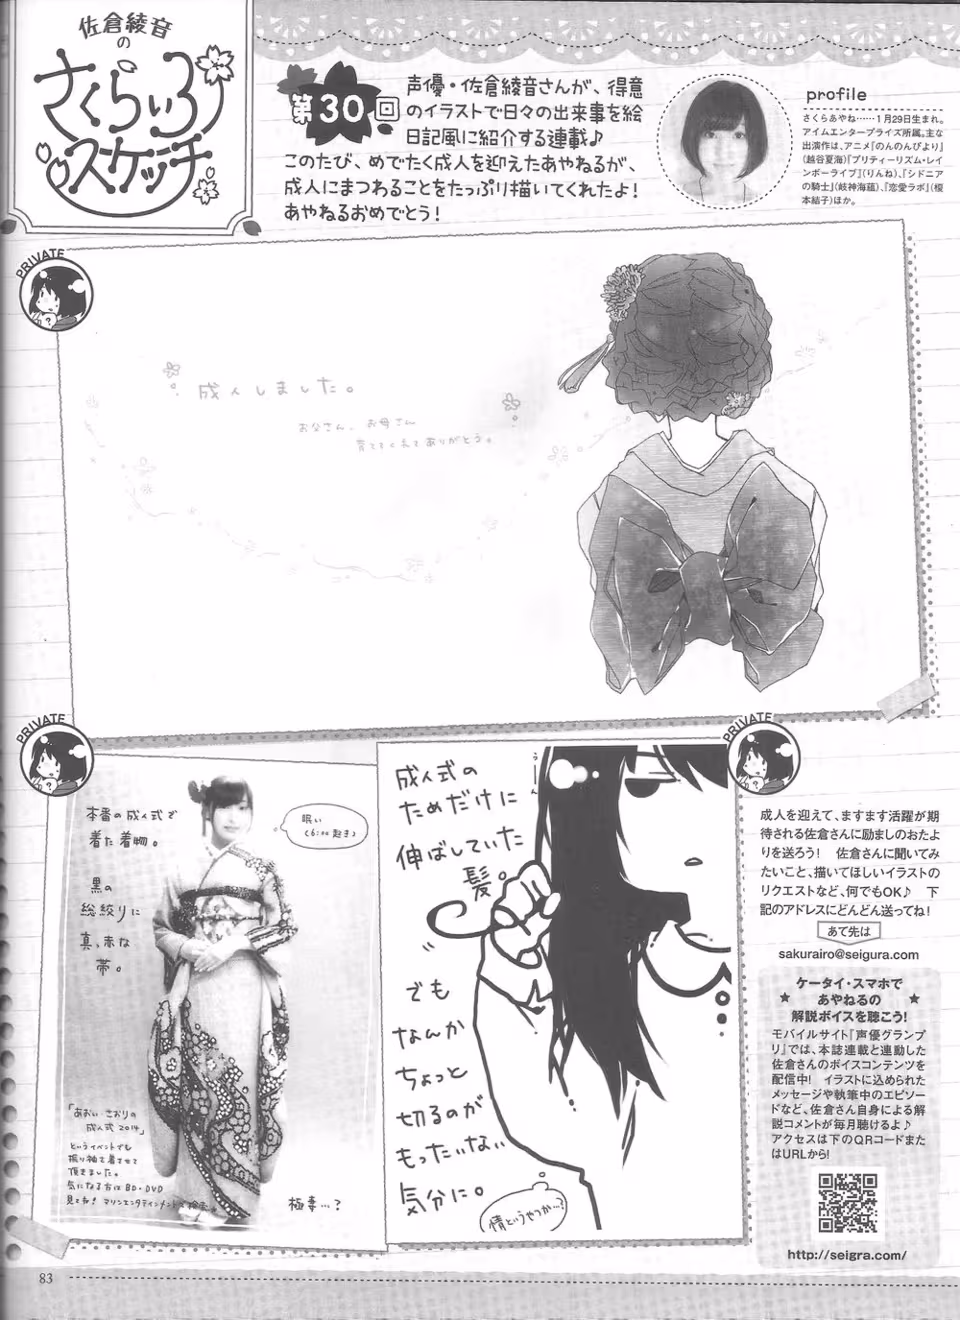 佐倉綾音
の
さくらいろ
スケッチ
第30回
声優・佐倉綾音さんが、得意
のイラストで日々の出来事を絵
日記風に紹介する連載♪
このたび、めでたく成人を迎えたあやねるが、
成人にまつわることをたっぷり描いてくれたよ！
あやねるおめでとう！
profile
さくらあやね……1月29日生まれ。
アイムエンタープライズ所属。主な
出演作は、アニメ『のんのんびより』
（越谷夏海）『プリティーリズム・レイ
ンボーライブ』（りんね）、『シドニア
の騎士』（岐神海蘊）、『恋愛ラボ』（榎
本結子）ほか。
PRIVATE
成人しました。
お父さん、お母さん
育ててくれてありがとう。
PRIVATE
本番の成人式で
着た着物。
黒の
総絞りに
真、赤な
帯。
眠い
（6:00起き）
「あおい・さおりの
成人式2014」
というイベントでも
振り袖で着させて
頂きました。
気になる方はBD・DVD
見てね！マリンエンタテインメントで検索
極妻…？
PRIVATE
成人式の
ためだけに
伸ばしていた
髪。
うーん
でも
なんか
ちょっと
切るのが
もったいない
気分に。
情というやつか…？
成人を迎えて、ますます活躍が期
待される佐倉さんに励ましのおたよ
りを送ろう！　佐倉さんに聞いてみ
たいこと、描いてほしいイラストの
リクエストなど、何でもOK♪　下
記のアドレスにどんどん送ってね！
あて先は
sakurairo@seigura.com
ケータイ・スマホで
★ あやねるの ★
解説ボイスを聴こう！
モバイルサイト『声優グランプ
リ』では、本誌連載と連動した
佐倉さんのボイスコンテンツを
配信中！　イラストに込められた
メッセージや執筆中のエピソー
ドなど、佐倉さん自身による解
説コメントが毎月聴けるよ♪
アクセスは下のQRコードまた
はURLから！
http://seigra.com/
83